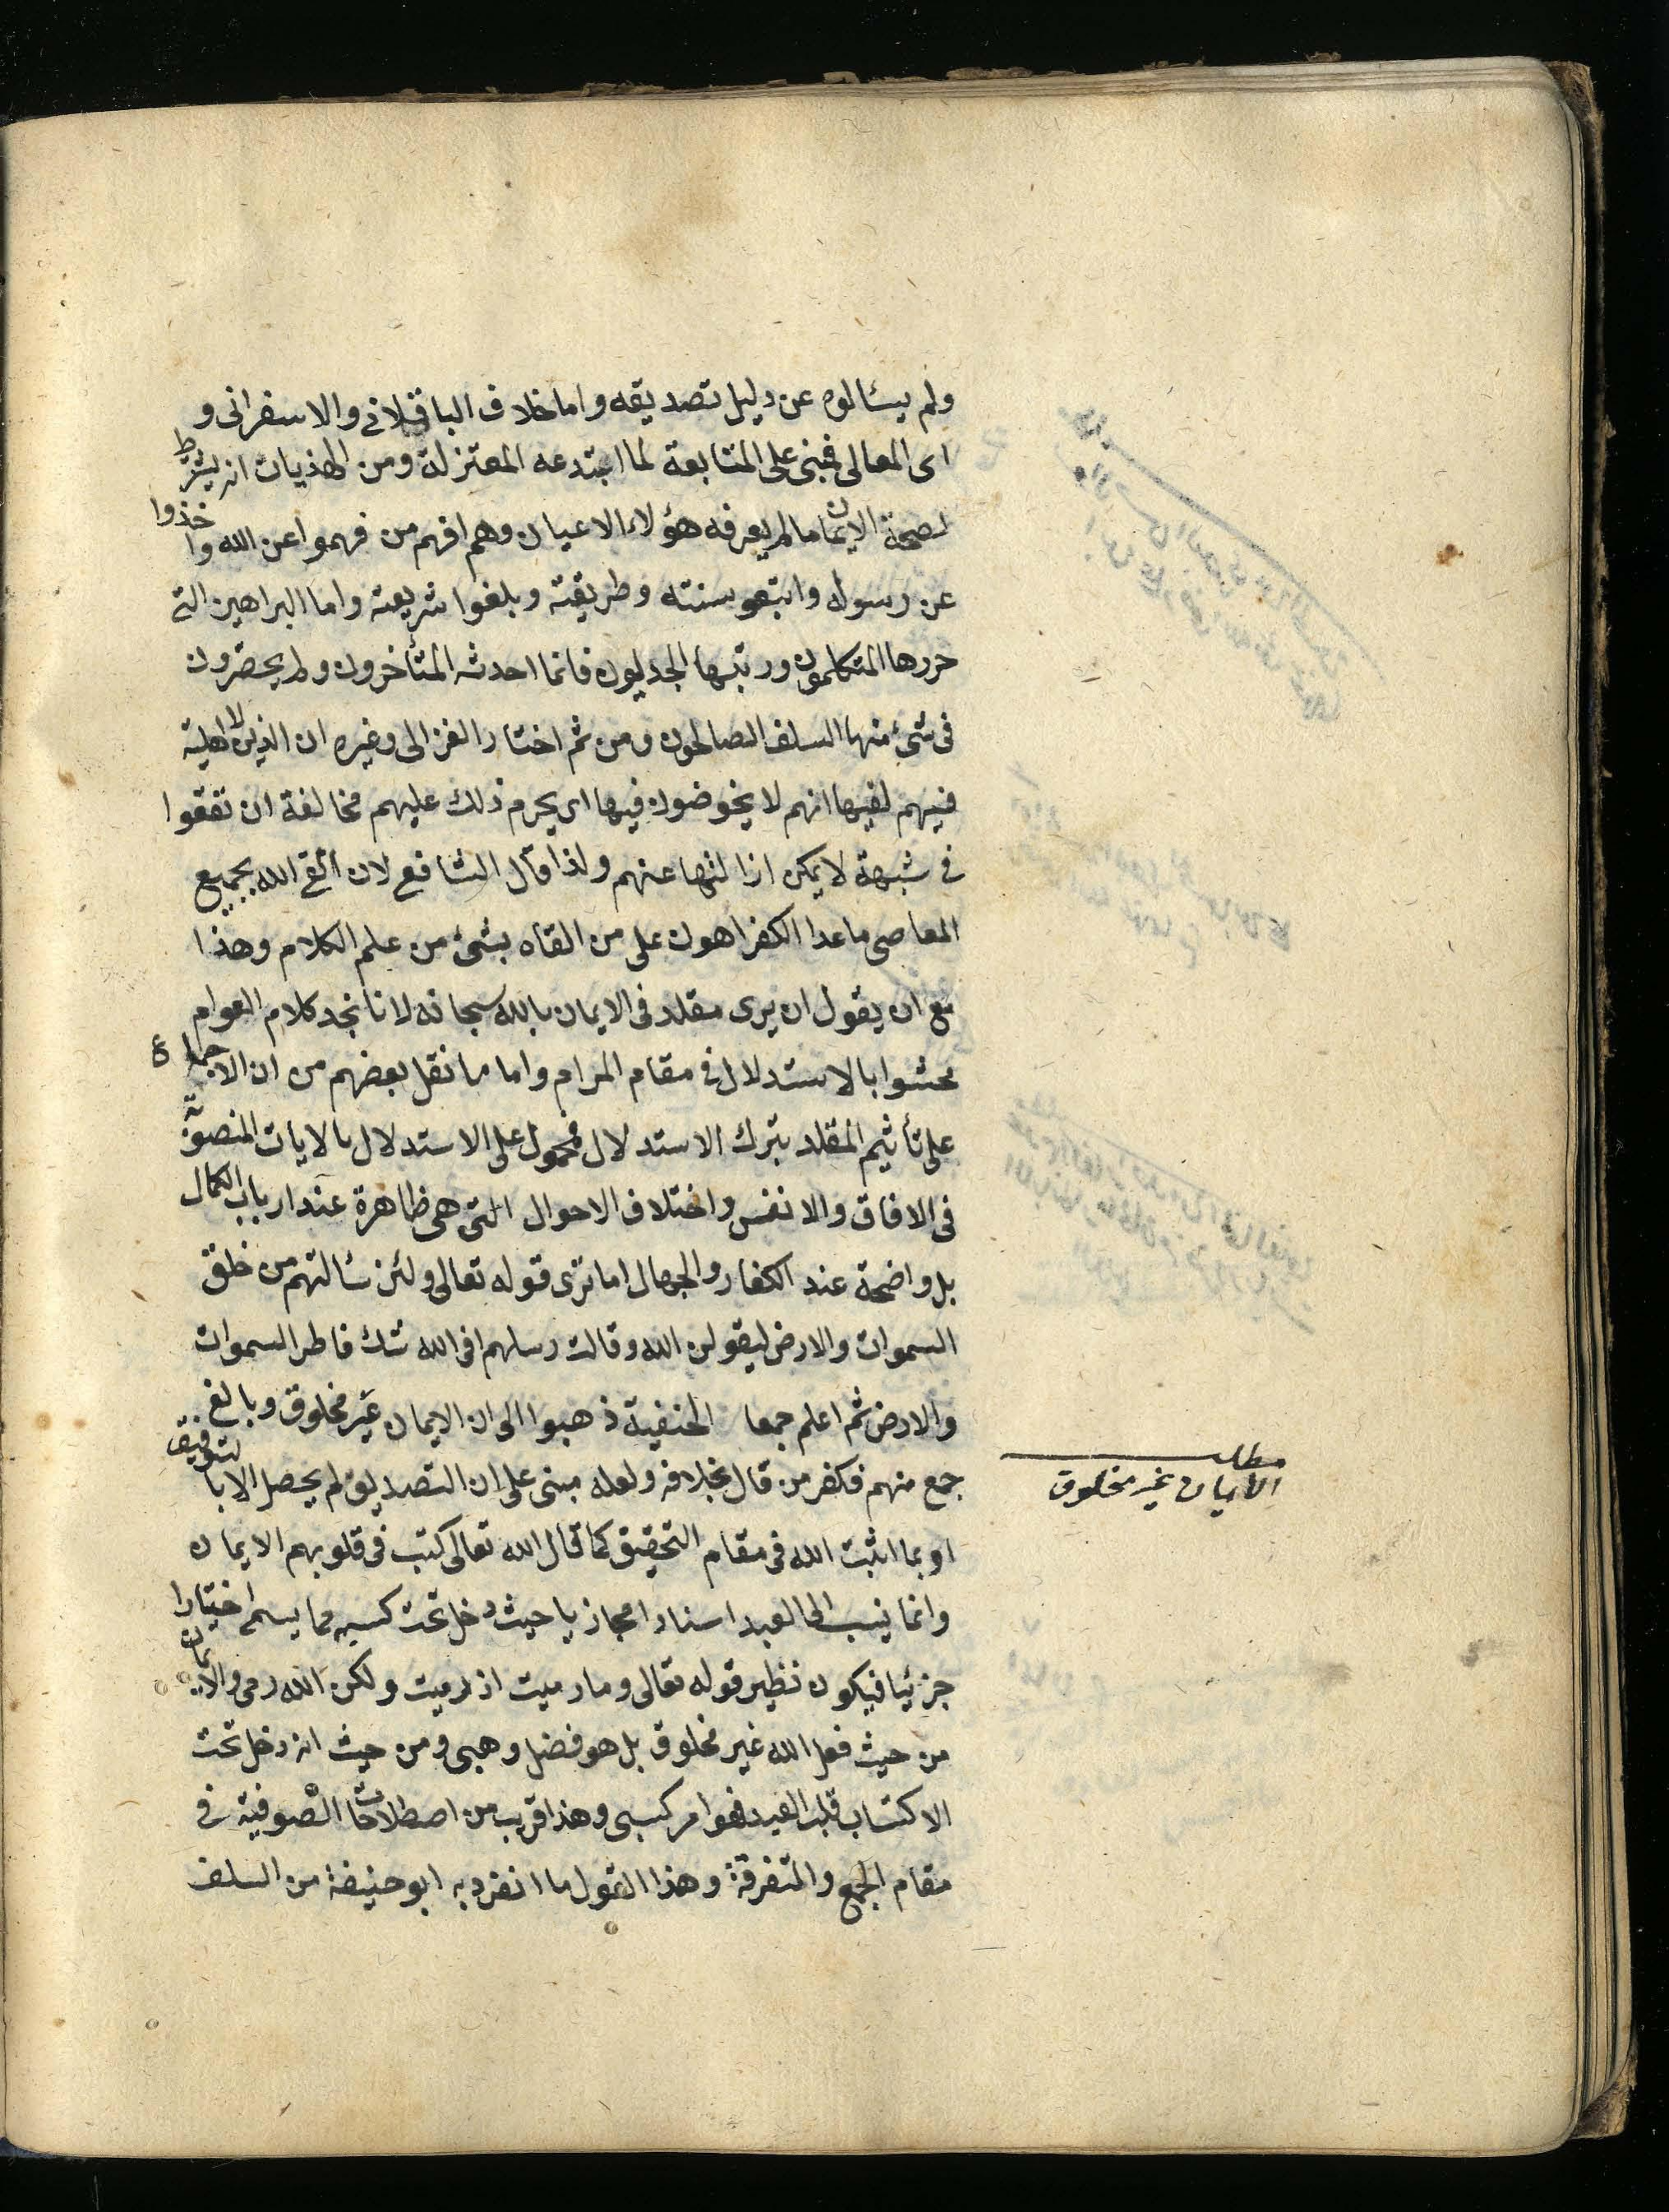 ولم يسئالوه عن دليل تصديقه واما خلاف الباقلانى والاسفرانى و
ابى المعالى فمبنى على المتابعة لما ابتدعه المعتزلة ومن الهذيات انه يشترط
لصحة الايمان مالم يعرفه هؤلاء الاعيان وهم افهم من فهموا عن الله واخذوا
عن رسوله واتبعو سنته وطريقته وبلغوا شريعته واما البراهين التى
حررها المتكلمون ورتبها الجدليون فانما احدثه المتأخرون ولم يحضرون
فى شئ منها السلف الصالحون ومن ثم اختار الغزالى وغيره ان الذين لا اهلية
فيهم لفيها انهم لا يخوضون فيها اى يحرم ذلك عليهم مخالفة ان تفقوا
فى شبهة لا يمكن ازالتها عنهم ولذا قال الشافع لان القى الله بجميع
المعاصى ماعدا الكفر اهون على من القاه بشئ من علم الكلام وهذا
مع ان يقول ان يرى مقلد فى الايمان بالله سبحانه لانا نجد كلام العوام
محشوا بالاستدلال فى مقام المرام واما ما نقل بعضهم من ان الاجماع
على تأثيم المقلد بترك الاستدلال فمحمول على الاستدلال بالايات المنصوبة
فى الافاق والانفس واختلاف الاحوال التى هى ظاهرة عند ارباب الكمال
بل واضحة عند الكفار والجهال اما ترى قوله تعالى ولئن سئالتهم من خلق
السموات والارض ليقولن الله وقالت رسلهم افى الله شك فاطر السموات
والارض ثم اعلم جمعا الحنفية ذهبوا الى ان الايمان غير مخلوق وبالغ
جمع منهم فكفر من قال بخلافه ولعله مبنى على ان التصديق لم يحصل الا بالتوفيق
مطلب
الأيمان غير مخلوق
او بما اثبت الله فى مقام التحقيق كما قال الله تعالى كتب فى قلوبهم الايمان
وانما ينسب الى العبد اسنادا مجازيا حيث دخل تحت كسبه مما يسمى اختيارا
جزئيا فيكون نظير قوله تعالى وما رميت اذ رميت ولكن الله رمى والايمان
من حيث فعل الله غير مخلوق بل هو فضل وهبى ومن حيث انه دخل تحت
الاكتساب قلب العبد فهو امر كسبى وهذا قريب من اصطلاحات الصوفية فى
مقام الجمع والتفرقة وهذا القول ما انفرد به ابو حنيفة من السلف